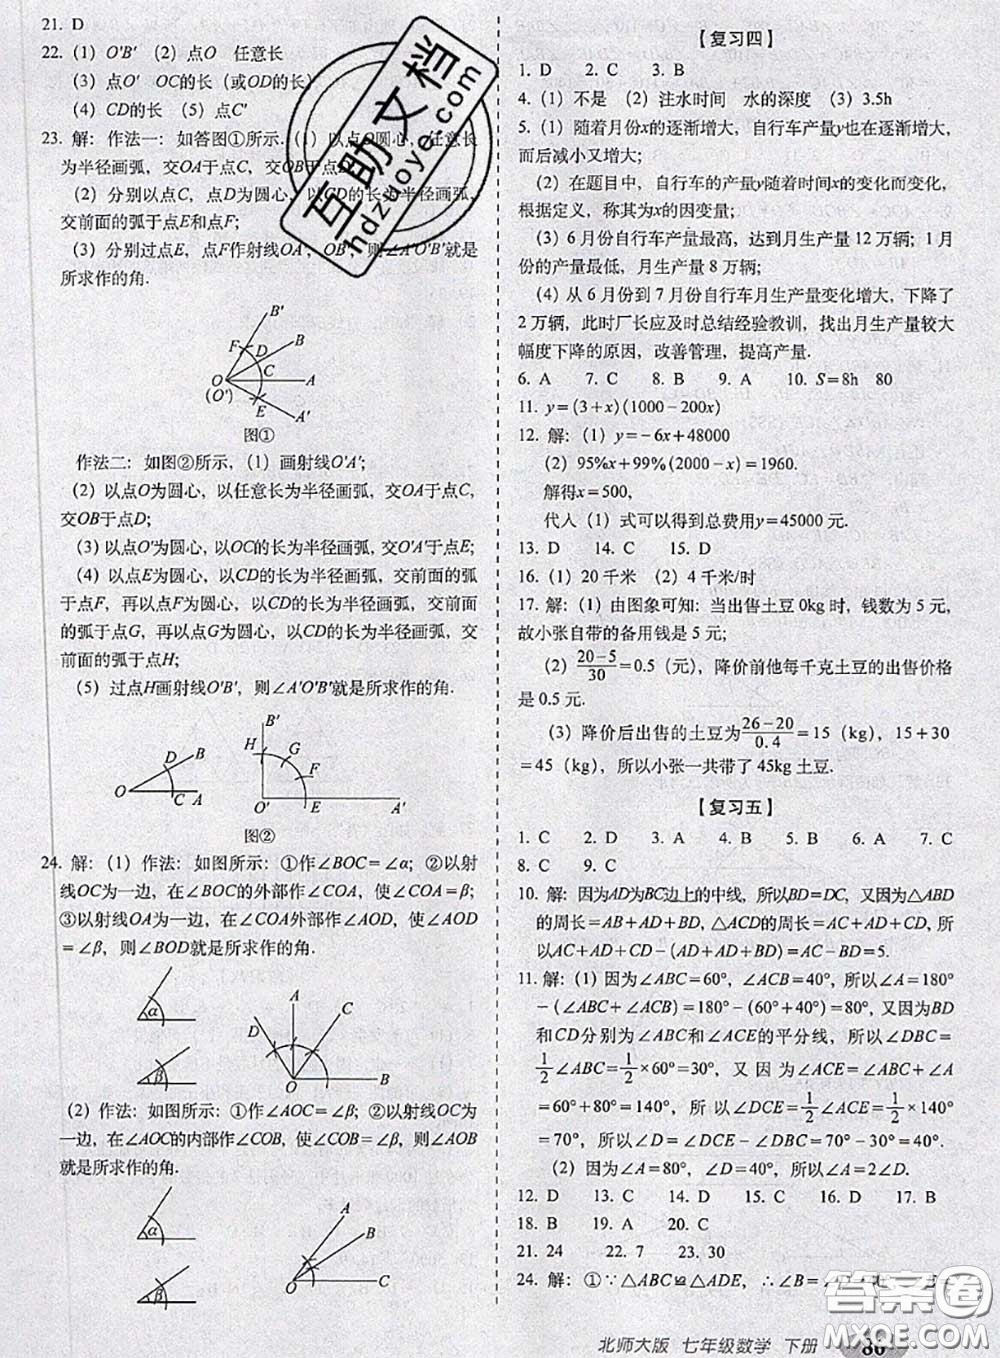 21. D
22. (1) O′B′ (2) 点O 任意长
(3) 点O′ OC的长(或OD的长)
(4) CD的长 (5) 点C′
23. 解: 作法一: 如答图①所示. (1) 以点O圆心, 任意长
为半径画弧, 交OA于点C, 交OB于点
(2) 分别以点C, 点D为圆心, 以CD的长为半径画弧,
交前面的弧于点E和点F;
(3) 分别过点E, 点F作射线OA′, OB′, 则∠A′O′B′就是
所求作的角.
B′
F D B
C
O A
(O′)
E A′
图①
作法二: 如图②所示, (1) 画射线O′A′;
(2) 以点O为圆心, 以任意长为半径画弧, 交OA于点C,
交OB于点D;
(3) 以点O′为圆心, 以OC的长为半径画弧, 交O′A′于点E;
(4) 以点E为圆心, 以CD的长为半径画弧, 交前面的弧
于点F, 再以点F为圆心, 以CD的长为半径画弧, 交前面
的弧于点G, 再以点G为圆心, 以CD的长为半径画弧, 交
前面的弧于点H;
(5) 过点H画射线O′B′, 则∠A′O′B′就是所求作的角.
B′
H G
D B F
O C A O′ E A′
图②
24. 解: (1) 作法: 如图所示: ①作∠BOC=∠α; ②以射
线OC为一边, 在∠BOC的外部作∠COA, 使∠COA=β;
③以射线OA为一边, 在∠COA外部作∠AOD, 使∠AOD
=∠β, 则∠BOD就是所求作的角.
A
D C
α
β O B
(2) 作法: 如图所示: ①作∠AOC=∠β; ②以射线OC为
一边, 在∠AOC的内部作∠COB, 使∠COB=∠β, 则∠AOB
就是所求作的角.
A
B
α
β O C
【复习四】
1. D 2. C 3. B
4. (1) 不是 (2) 注水时间 水的深度 (3) 3.5h
5. (1) 随着月份x的逐渐增大, 自行车产量y也在逐渐增大,
而后减小又增大;
(2) 在题目中, 自行车的产量y随着时间x的变化而变化,
根据定义, 称其为x的因变量;
(3) 6月份自行车产量最高, 达到月生产量12万辆; 1月
份的产量最低, 月生产量8万辆;
(4) 从6月份到7月份自行车月生产量变化增大, 下降了
2万辆, 此时厂长应及时总结经验教训, 找出月生产量较大
幅度下降的原因, 改善管理, 提高产量.
6. A 7. C 8. B 9. A 10. S=8h 80
11. y=(3+x)(1000-200x)
12. 解: (1) y=-6x+48000
(2) 95%x+99%(2000-x)=1960.
解得x=500,
代人 (1) 式可以得到总费用y=45000元.
13. D 14. C 15. D
16. (1) 20千米 (2) 4千米/时
17. 解: (1) 由图象可知: 当出售土豆0kg时, 钱数为5元,
故小张自带的备用钱是5元;
(2) (20-5)/30=0.5 (元), 降价前他每千克土豆的出售价格
是0.5元.
(3) 降价后出售的土豆为(26-20)/0.4=15 (kg), 15+30
=45 (kg), 所以小张一共带了45kg土豆.
【复习五】
1. C 2. D 3. A 4. B 5. B 6. A 7. C
8. C 9. C
10. 解: 因为AD为BC边上的中线, 所以BD=DC, 又因为△ABD
的周长=AB+AD+BD, △ACD的周长=AC+AD+CD, 所
以AC+AD+CD-(AD+AD+BD)=AC-AB=5.
11. 解: (1) 因为∠ABC=60°, ∠ACB=40°, 所以∠A=180°
-(∠ABC+∠ACB)=180°-(60°+40°)=80°, 又因为BD
和CD分别为∠ABC和∠ACE的平分线, 所以∠DBC=
1/2∠ABC=1/2×60°=30°, 又因为∠ACE=∠ABC+∠A
=60°+80°=140°, 所以∠DCE=1/2∠ACE=1/2×140°
=70°, 所以∠D=∠DCE-∠DBC=70°-30°=40°.
(2) 因为∠A=80°, ∠D=40°, 所以∠A=2∠D.
12. D 13. C 14. D 15. C 16. D 17. B
18. B 19. A 20. C
21. 24 22. 7 23. 30
24. 解: ①∵△ABC≌△ADE, ∴∠B=
北师大版 七年级数学 下册 86
互助文档
hdzuoye.com
答案圈
MXQE.COM